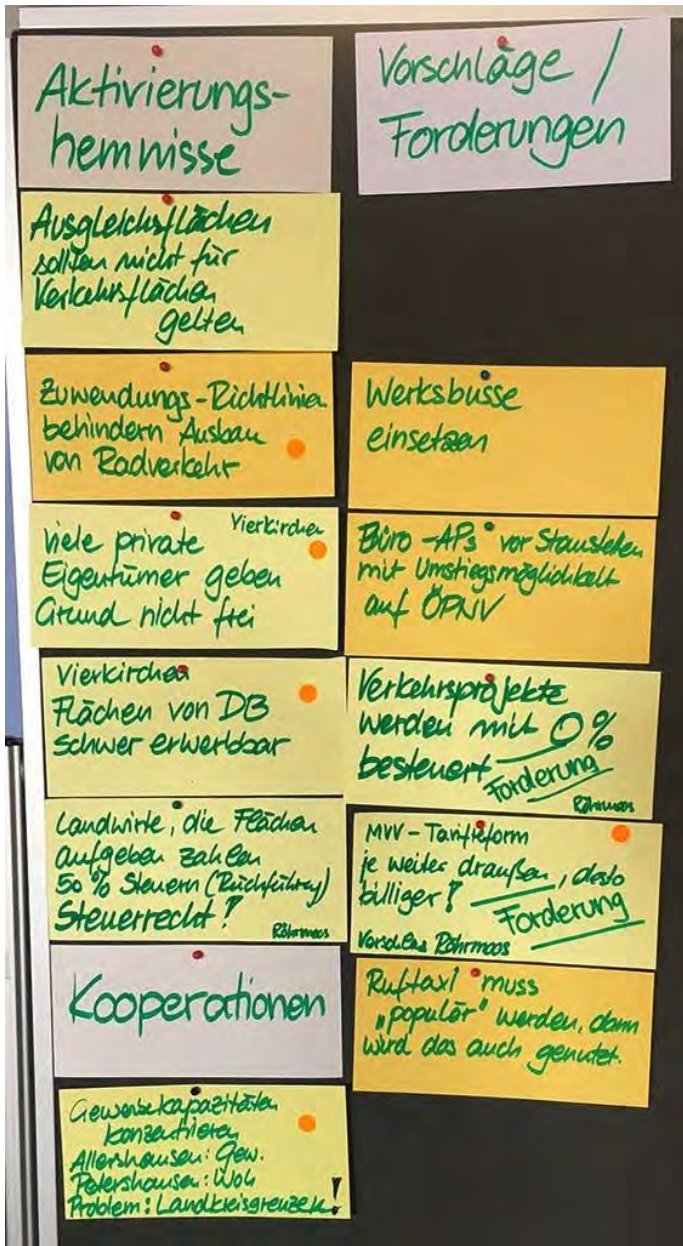 Aktivierungs-
hemnisse
Ausgleichsflächen
sollten nicht für
Verkehrsflächen
gelten
Zuwendungs-Richtlinien
behindern Ausbau
von Radverkehr
Vierkirchen
Viele private
Eigentümer geben
Grund nicht frei
Vierkirchen
Flächen von DB
schwer erwerbbar
Landwirte, die Flächen
aufgeben zahlen
50 % Steuern (Rückführung)
Steuerrecht!
Röhrmoos
Kooperationen
Gewerbekapazitäten
konzentrieren
Allershausen: Gew.
Petershausen: Woh
Problem: Landkreisgrenzen!
Vorschläge /
Forderungen
Werksbusse
einsetzen
Büro-APs vor Staustellen
mit Umstiegsmöglichkeit
auf ÖPNV
Verkehrsprojekte
werden mit 0 %
besteuert
Forderung
Röhrmoos
MVV-Tarifreform
je weiter draußen, desto
billiger!
Forderung
Vorschlag Röhrmoos
Ruftaxi muss
„populär" werden, dann
wird das auch genutzt.